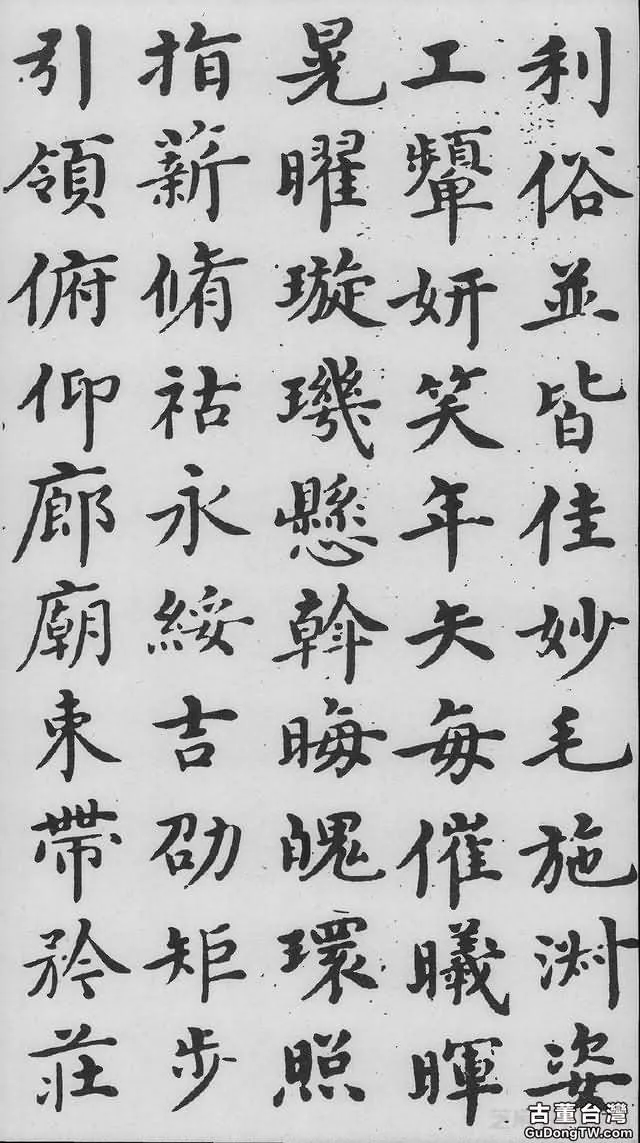 利俗並皆佳妙毛施淵姿
工顰妍笑年矢每催曦暉
晃曜璇璣懸斡晦魄環照
指薪脩祜永綏吉劭矩步
引領俯仰廊廟束帶矜莊
古董台灣
GuDongTW.com